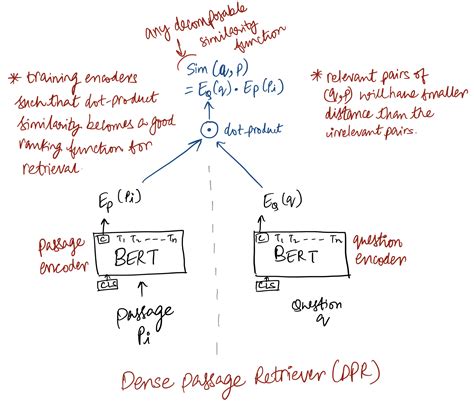 any decomposable
similarity
function
Sim (q, p)
= EQ(q) · Ep(Pi)
* training encoders
such that dot-product
similarity becomes a good
ranking function for
retrieval.
* relevant pairs of
(q,p) will have smaller
distance than the
irrelevant pairs.
dot-product
Ep (Pi)
EQ (q)
passage
encoder
C T1 T2 ---- Tn
BERT
CLS
C T1 T2 ---- Tn
BERT
CLS
question
encoder
Passage
Pi
Question
q
Dense Passage Retriever (DPR)